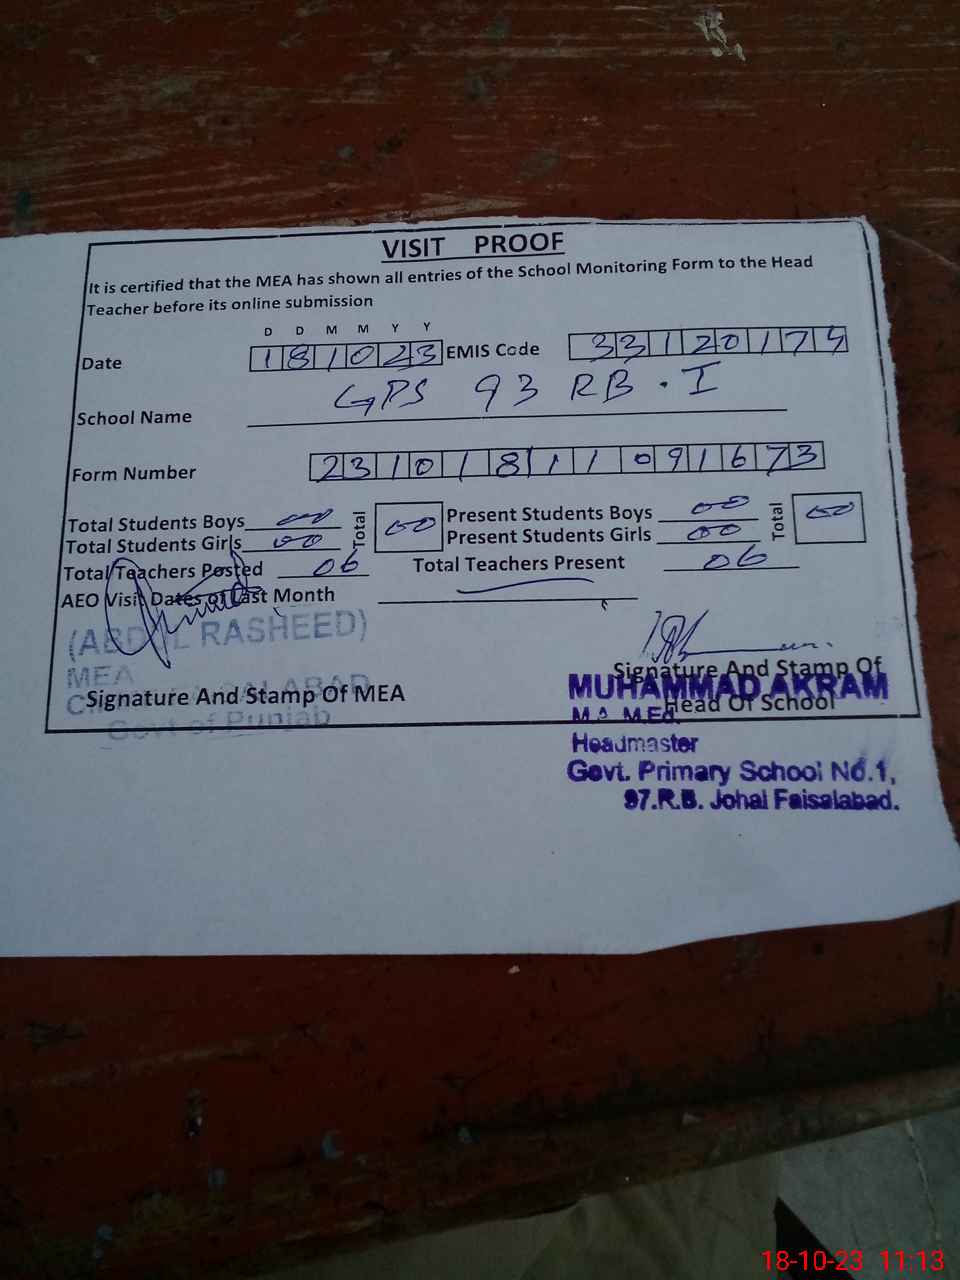 VISIT PROOF
It is certified that the MEA has shown all entries of the School Monitoring Form to the Head
Teacher before its online submission
D D M M Y Y
Date 181023 EMIS Code 33120174
School Name GPS 93 RB . I
Form Number 23101811091673
Total Students Boys 00 Total 00 Present Students Boys 00 Total 00
Total Students Girls 00 Present Students Girls 00
Total Teachers Posted 06 Total Teachers Present 06
AEO Visit Dates of Last Month
(ABDUL RASHEED)
MEA
Signature And Stamp Of MEA
Govt of Punjab
Signature And Stamp Of
Head Of School
MUHAMMAD AKRAM
M.A M.Ed.
Headmaster
Govt. Primary School No.1,
97.R.B. Johal Faisalabad.
18-10-23 11:13